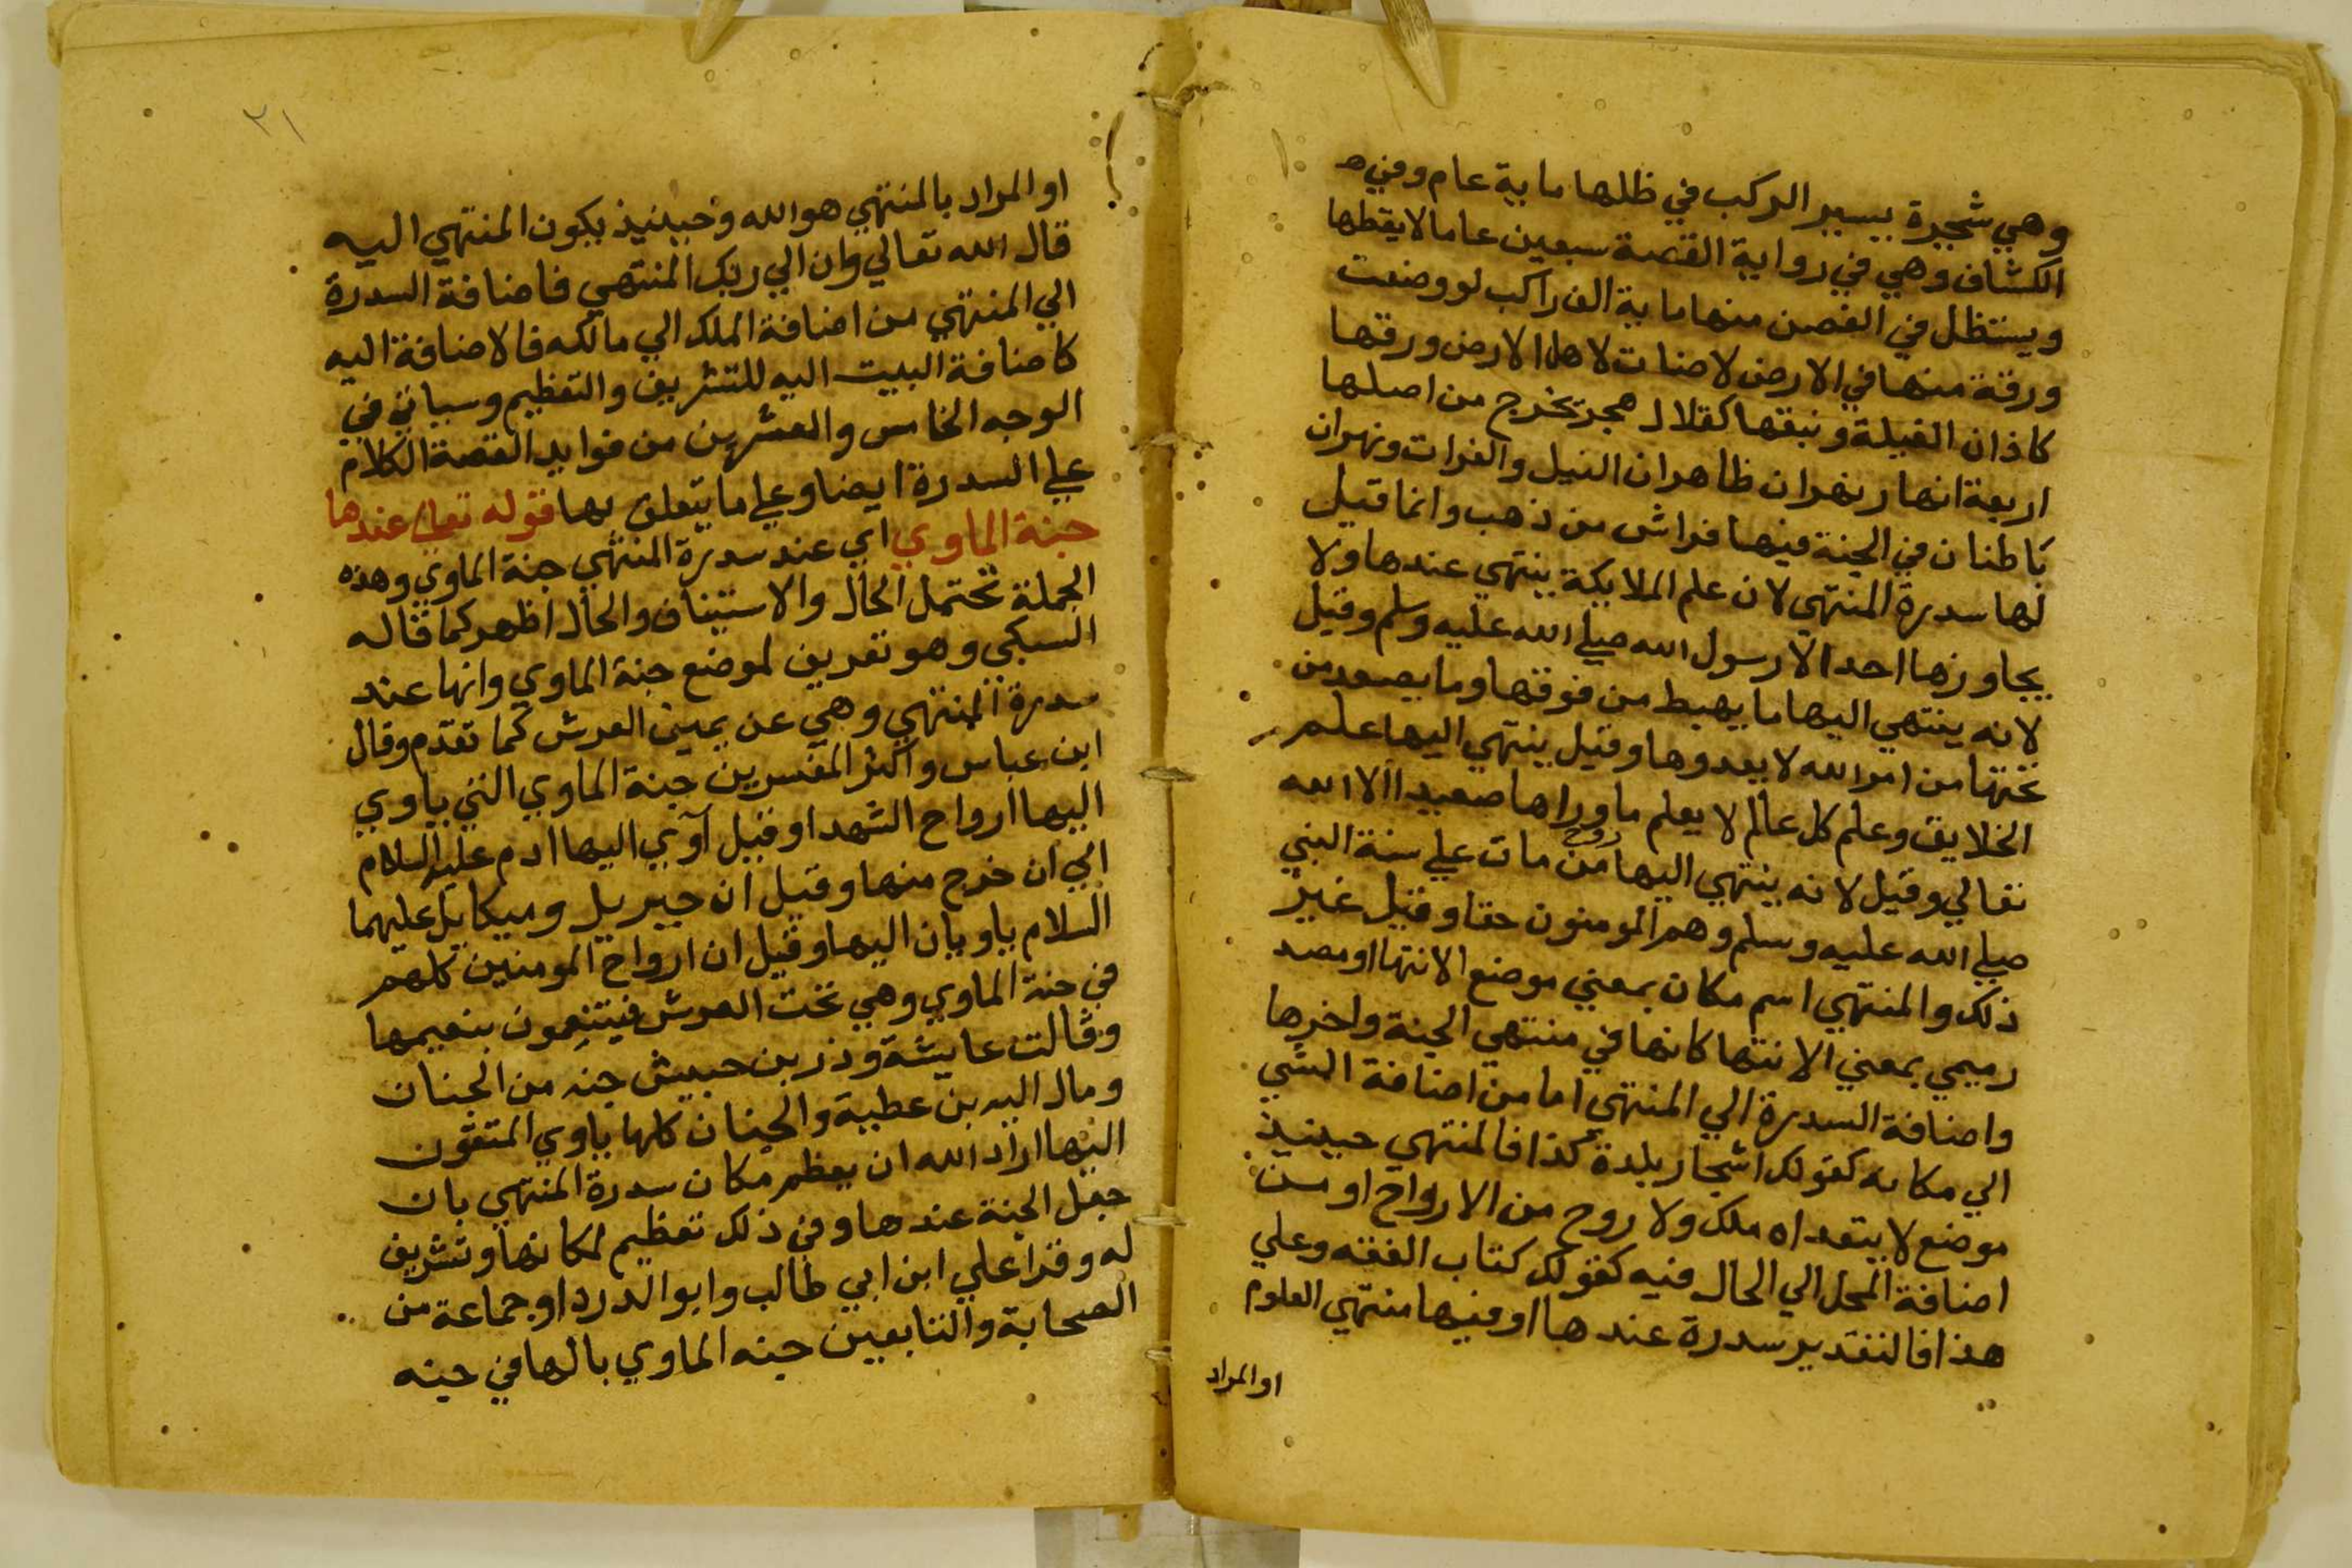 وهي شجرة يسير الركب في ظلها ماية عام وفي
الكشاف وهي في رواية القصة سبعين عاما لا يقطها
ويستظل في الغصن منها ماية الف راكب لو وضعت
ورقة منها في الارض لاضات لاهل الارض ورقها
كاذان الفيلة ونبقها كقلال هجر تخرج من اصلها
اربعة انهار نهران ظاهران النيل والفرات ونهران
باطنان في الجنة فيها فراش من ذهب وانما قيل
لها سدرة المنتهي لان علم الملايكة ينتهي عندها ولا
يجاوزها احد الا رسول الله صلي الله عليه وسلم وقيل
لانه ينتهي اليها ما يهبط من فوقها وما يصعد من
تحتها من امر الله لا يعدوها وقيل ينتهي اليها علم
الخلايق وعلم كل عالم لا يعلم ما وراها صعيدا الا الله
تعالي وقيل لانه ينتهي اليها روح من مات علي سنة النبي
صلي الله عليه وسلم وهم المومنون حقا وقيل غير
ذلك والمنتهي اسم مكان بمعني موضع الانتها او مصد
رميمي بمعني الانتها كانها في منتهي الجنة واخرها
واضافة السدرة الي المنتهي اما من اضافة الشي
الي مكانه كقولك اشجار بلدة كذا فالمنتهي حينيذ
موضع لا يتعداه ملك ولا روح من الارواح او من
اضافة المحل الي الحال فيه كقولك كتاب الفقه وعلي
هذا فالتقدير سدرة عندها او فيها منتهي العلوم
او المراد
٢١
او المراد بالمنتهي هو الله وحينيذ يكون المنتهي اليه
قال الله تعالي وان الي ربك المنتهي فاضافة السدرة
الي المنتهي من اضافة الملك الي مالكه فالاضافة اليه
كاضافة البيت اليه للتشريف والتعظيم وسياتي في
الوجه الخامس والعشرين من فوايد القصة الكلام
علي السدرة ايضا وعلي ما يتعلق بها قوله تعالي عندها
جنة الماوي اي عند سدرة المنتهي جنة الماوي وهذه
الجملة تحتمل الحال والاستيناف والحال اظهر كما قاله
السبكي وهو تعريف لموضع جنة الماوي وانها عند
سدرة المنتهي وهي عن يمين العرش كما تقدم وقال
ابن عباس واكثر المفسرين جنة الماوي التي ياوي
اليها ارواح الشهدا وقيل آوي اليها ادم عليه السلام
الي ان خرج منها وقيل ان جبريل وميكايل عليهما
السلام ياويان اليها وقيل ان ارواح المومنين كلهم
في جنة الماوي وهي تحت العرش فيتنعمون بنعيمها
وقالت عايشة وزر بن حبيش جنه من الجنان
ومال اليه بن عطية والجنان كلها ياوي المتقون
اليها اراد الله ان يعظم مكان سدرة المنتهي بان
جعل الجنة عندها وفي ذلك تعظيم لمكانها وتشريف
له وقرا علي ابن ابي طالب وابو الدردا وجماعة من
الصحابة والتابعين جنه الماوي بالها في جنه